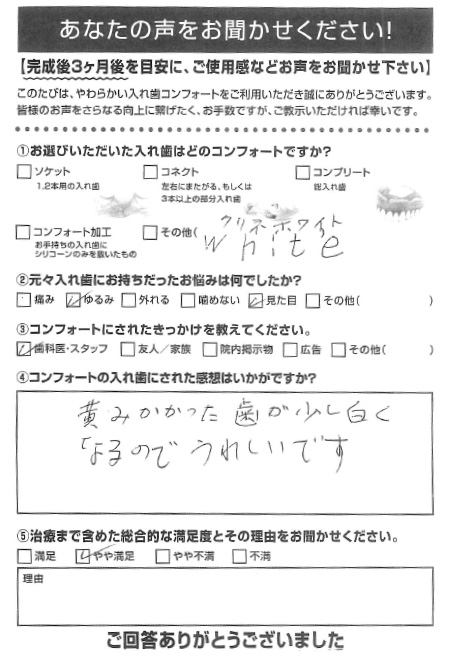 あなたの声をお聞かせください!
【完成後3ヶ月後を目安に、ご使用感などお声をお聞かせ下さい】
このたびは、やわらかい入れ歯コンフォートをご利用いただき誠にありがとうございます。
皆様のお声をさらなる向上に繋げたく、お手数ですが、ご教示いただければ幸いです。
①お選びいただいた入れ歯はどのコンフォートですか?
□ソケット
1,2本用の入れ歯
□コネクト
左右にまたがる、もしくは
3本以上の部分入れ歯
□コンプリート
総入れ歯
□コンフォート加工
お手持ちの入れ歯に
シリコーンのみを敷いたもの
□その他(
クリネホワイト
white
②元々入れ歯にお持ちだったお悩みは何でしたか?
□痛み ☑ゆるみ □外れる □噛めない ☑見た目 □その他( )
③コンフォートにされたきっかけを教えてください。
☑歯科医・スタッフ □友人/家族 □院内掲示物 □広告 □その他( )
④コンフォートの入れ歯にされた感想はいかがですか?
黄みかかった歯が少し白く
なるのでうれしいです
⑤治療まで含めた総合的な満足度とその理由をお聞かせください。
□満足 ☑やや満足 □やや不満 □不満
理由
ご回答ありがとうございました